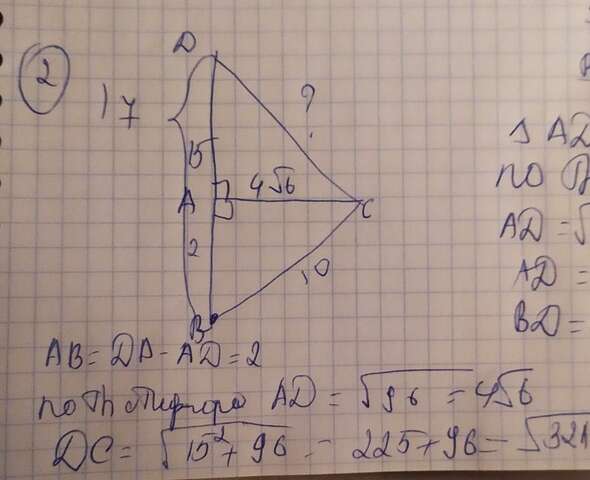 2
D
17
?
15
A
4√6
C
2
10
B
AB = DA - AD = 2
по Th Пифагора AD = √96 = 4√6
DC = √15² + 96 = 225 + 96 = √321
AD
по
AD = √
AD =
BD =